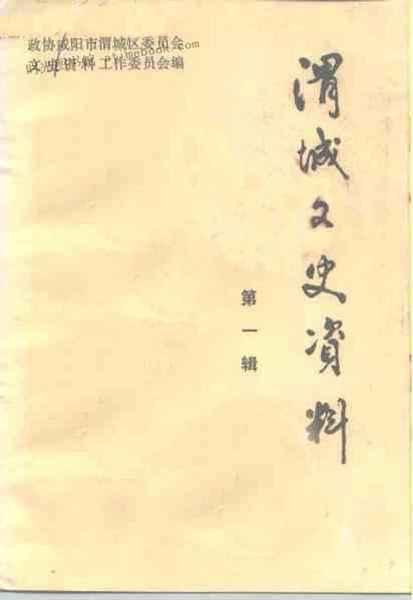 政协咸阳市渭城区委员会
文史资料工作委员会编
渭城文史資料
第一辑